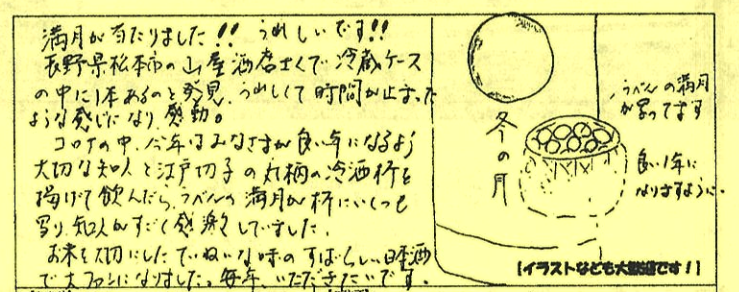 満月が当たりました!! うれしいです!!
長野県松本市の山屋酒店さんで冷蔵ケース
の中に1本あるのを発見、うれしくて時間が止まった
ような感じになり、感動。
コロナの中、今年はみなさまが良い年になるよう
大切な知人と江戸切子の丸柄の冷酒杯を
掲げて飲んだら、うべんの満月が杯にいくつも
写り、知人がすごく感激していました。
お米を大切にしたていねいな味のすばらしい日本酒
で大ファンになりました。毎年、いただきたいです。
冬の月
うべんの満月
が写ってます
良い1年に
なりますように。
[イラストなども大歓迎です!]